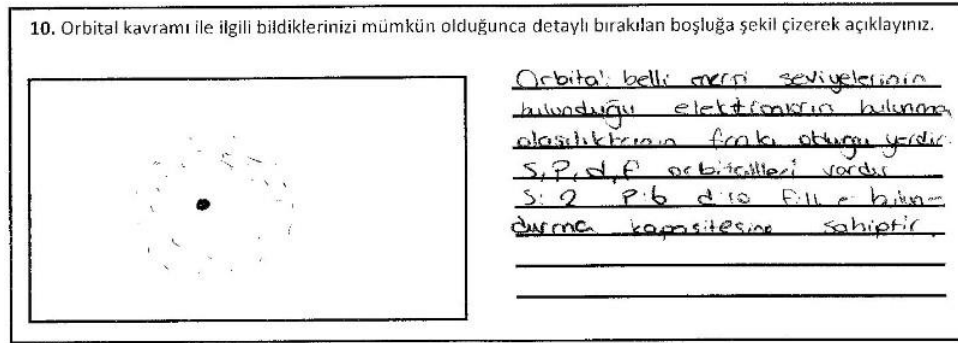 10. Orbital kavramı ile ilgili bildiklerinizi mümkün olduğunca detaylı bırakılan boşluğa şekil çizerek açıklayınız.
Orbital: belli enerji seviyelerinin
bulunduğu elektronların bulunma
olasılıklarının fazla olduğu yerdir.
S, P, d, f orbitalleri vardır
S: 2 P: 6 d: 10 F: 14 e- bulun-
durma kapasitesine sahiptir.